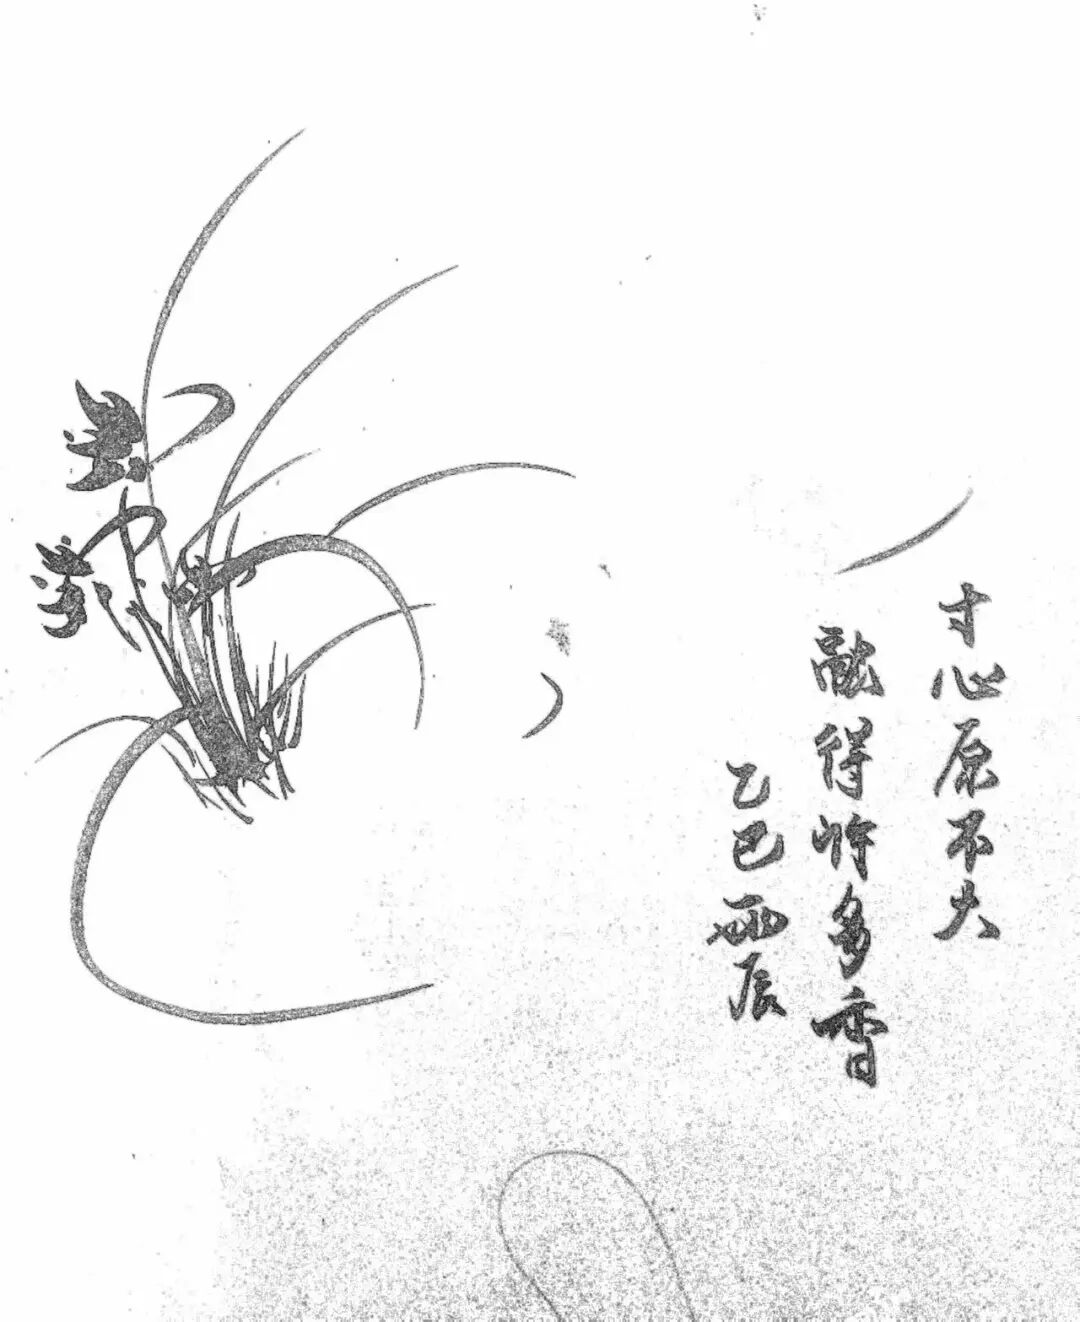 寸心原不大
融得许多香
乙巳辰